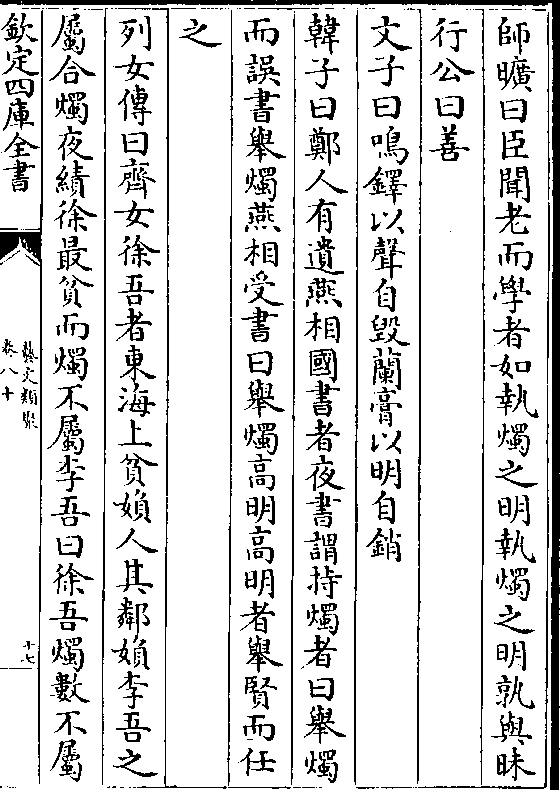 師曠曰臣聞老而學者如執燭之明執燭之明孰與昧
行公曰善
文子曰鳴鐸以聲自毀蘭膏以明自銷
韓子曰鄭人有遺燕相國書者夜書謂持燭者曰舉燭
而誤書舉燭燕相受書曰舉燭高明高明者舉賢而任
之
列女傳曰齊女徐吾者東海上貧婦人其鄰婦李吾之
屬合燭夜績徐最貧而燭不屬李吾曰徐吾燭數不屬
欽定四庫全書
藝文類聚
卷八十
十七